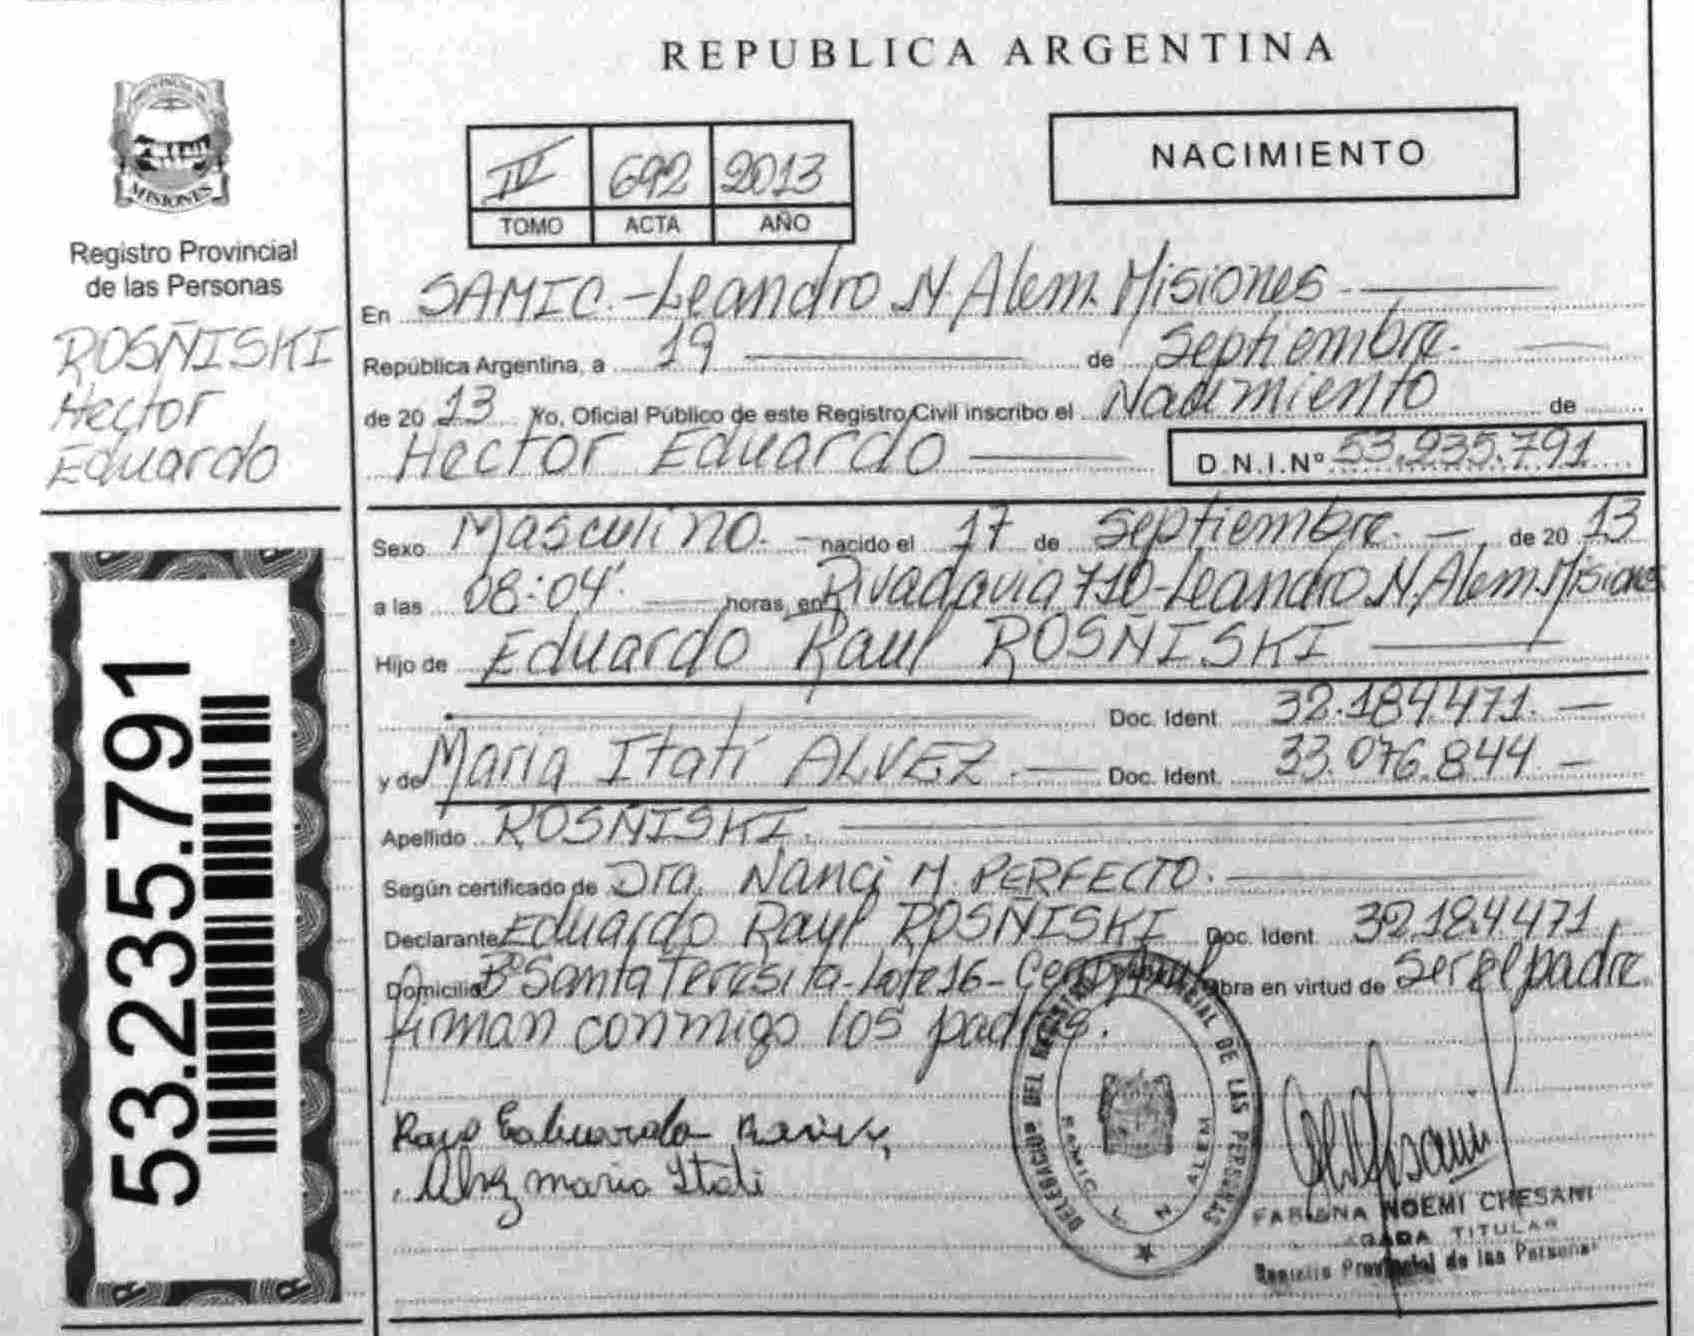 REPUBLICA ARGENTINA
MISIONES
Registro Provincial
de las Personas
ROSÑISKI
Hector
Eduardo
53.235.791
IV 692 2013
TOMO ACTA AÑO
NACIMIENTO
En SAMIC.-Leandro N. Alem. Misiones
República Argentina, a 19 de Septiembre.
de 2013 Yo, Oficial Público de este Registro Civil inscribo el Nacimiento de
Hector Eduardo D.N.I.Nº 53.235.791
Sexo Masculino. nacido el 17 de Septiembre. de 2013
a las 08:04' horas, en Rivadavia 710-Leandro N. Alem. Misiones
Hijo de Eduardo Raul ROSÑISKI
Doc. Ident. 32.184.471.
y de Maria Itatí ALVEZ. Doc. Ident. 33.076.844
Apellido ROSÑISKI.
Según certificado de Dra. Nanci M. PERFECTO.
Declarante Eduardo Raul ROSÑISKI Doc. Ident. 32.184.471
Domicilio Bº Santa Teresita-Lote 16- Obra en virtud de ser el padre
firman conmigo los padres.
Alvez maria Itati
DELEGACION DEL REGISTRO PROVINCIAL DE LAS PERSONAS
SAMIC L. N. ALEM
FABIANA NOEMI CHESANI
TITULAR
Registro Provincial de las Personas